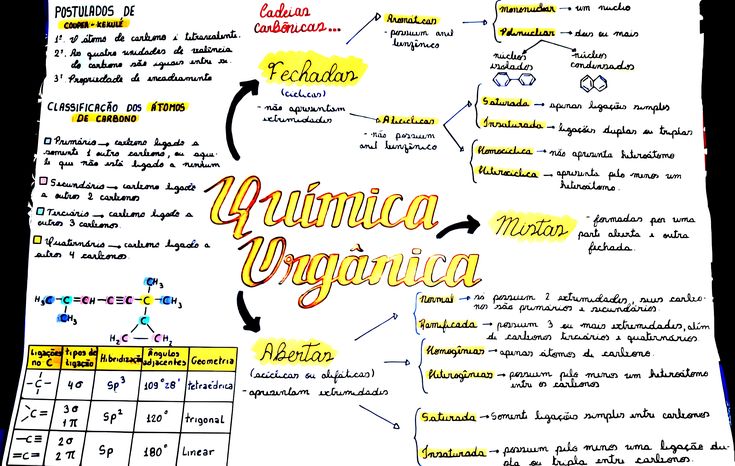 POSTULADOS DE
COUPER - KEKULÉ
1º. O átomo de carbono é tetravalente.
2º. As quatro unidades de valência
do carbono são iguais entre si.
3º Propriedade de encadeamento
CLASSIFICAÇÃO DOS ÁTOMOS
DE CARBONO
Primário → carbono ligado a
somente 1 outro carbono, ou aque-
le que não está ligado a nenhum
Secundário → carbono ligado
a outros 2 carbonos
Terciário → carbono ligado a
outros 3 carbonos.
Quaternário → carbono ligado a
outros 4 carbonos.
H₃C-C=CH-C≡C-C-CH₃
CH₃
CH₃
C
H₂C-CH₂
Ligações no C
tipos de ligação
Hibridização
Ângulos adjacentes
Geometria
-C-
4σ
Sp³
109°28'
tetraédrica
C=
3σ
1π
Sp²
120°
trigonal
-C≡
=C=
2σ
2π
Sp
180°
Linear
Cadeias
Carbônicas...
Fechadas
(cíclicas)
- não apresentam
extremidades
Aromáticas
- possuem anel
benzênico
Mononuclear → um núcleo
Polinuclear → dois ou mais
núcleos
isolados
núcleos
condensados
Alicíclicas
- não possuem
anel benzênico
Saturada → apenas ligações simples
Insaturada → ligações duplas ou triplas
Homocíclica → não apresenta heteroátomo
Heterocíclica → apresenta pelo menos um
heteroátomo.
Química
Orgânica
Mistas
- formadas por uma
parte aberta e outra
fechada.
Abertas
(acíclicas ou alifáticas)
- apresentam extremidades
Normal → só possuem 2 extremidades, seus carbo-
nos são primários e secundários.
Ramificada → possuem 3 ou mais extremidades, além
de carbonos terciários e quaternários.
Homogêneas → apenas átomos de carbono.
Heterogêneas → possuem pelo menos um heteroátomo
entre os carbonos
Saturada → Somente ligações simples entre carbonos
Insaturada → possuem pelo menos uma ligação du-
pla ou tripla entre carbonos.